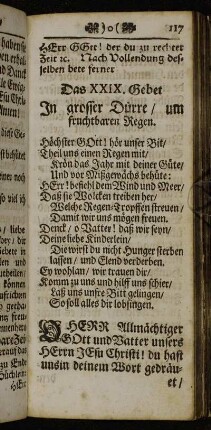 )o( 117
HErr GOtt! der du zu rechter
Zeit ꝛc. Nach Vollendung des-
selben bete ferner
Das XXIX. Gebet
In grosser Dürre / um
fruchtbaren Regen.
Höchster GOtt! hör unser Bit/
Theil uns einen Regen mit/
Krön das Jahr mit deiner Güte/
Und vor Mißgewächs behüte:
HErr! befiehl dem Wind und Meer/
Daß sie Wolcken treiben her/
Welche Regen-Tropffen streuen/
Damit wir uns mögen freuen.
Denck / o Vatter! daß wir seyn
Deine liebe Kinderlein/
Die wirst du nicht Hunger sterben
lassen / und Elend verderben.
Ey wohlan / wir trauen dir/
Komm zu uns und hilff uns schier/
Laß uns unsre Bitt gelingen/
So soll alles dir lobsingen.
O HERR Allmächtiger
GOtt und Vatter unsers
HErrn JEsu Christi! du hast
uns in deinem Wort gedräu-
et/